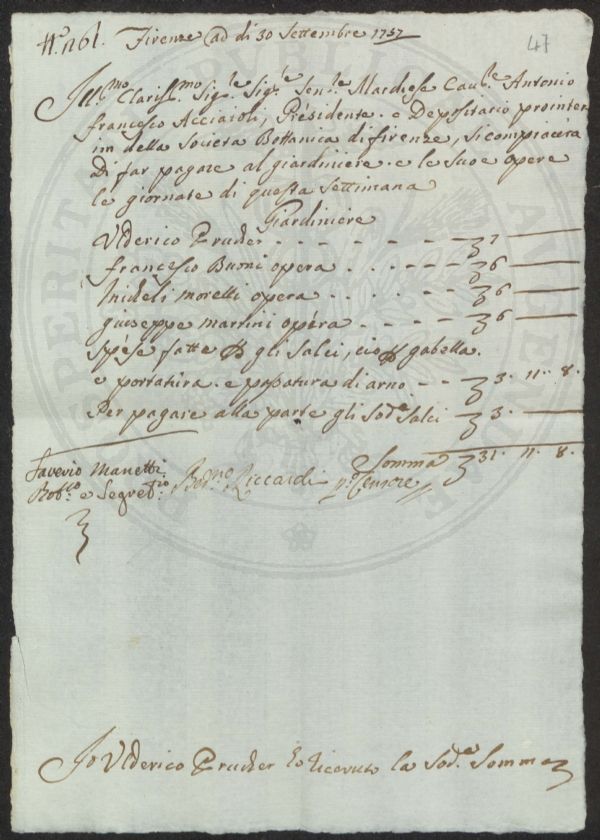 N.° 261. Firenze ad di 30 Settembre 1757
47
Ill.mo Clariss.mo Sig.re Sig.re Sen.re Marchese Cav.re Antonio
Francesco Acciaioli, Presidente. e Depositario prointer
im della Societa Bottanica di firenze, si compiacera
Di far pagare al giardiniere. e le Sue opere
le giornate di questa Settimana
Giardiniere
Ulderico Prucker - - - - - - - 7 —
francesco Buoni opera - - - - - 6 —
morelli opera - - - - - 6 —
giuseppe martini opera - - - - 6 —
Spese fatte per gli Salci, cio per gabella.
e portatura. e passatura di arno - - 3. 11. 8.
Per pagare alla parte gli Sod.i Salci 3. —
Somma 31. 11. 8.
Saverio Manetti
e Segret.rio
Riccardi
Censore
Io Ulderico Prucker ho ricevuto la Sod.a Somma